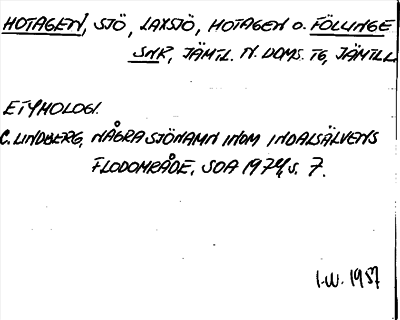 HOTAGEN, SJÖ, LAXSJÖ, HOTAGEN O. FÖLLINGE
SNR, JÄMTL. N. DOMS. TG, JÄMTLL
ETYMOLOGI.
C. LINDBERG, NÅGRA SJÖNAMN INOM INDALSÄLVENS
FLODOMRÅDE, SOA 1974, S. 7.
I.W. 1987